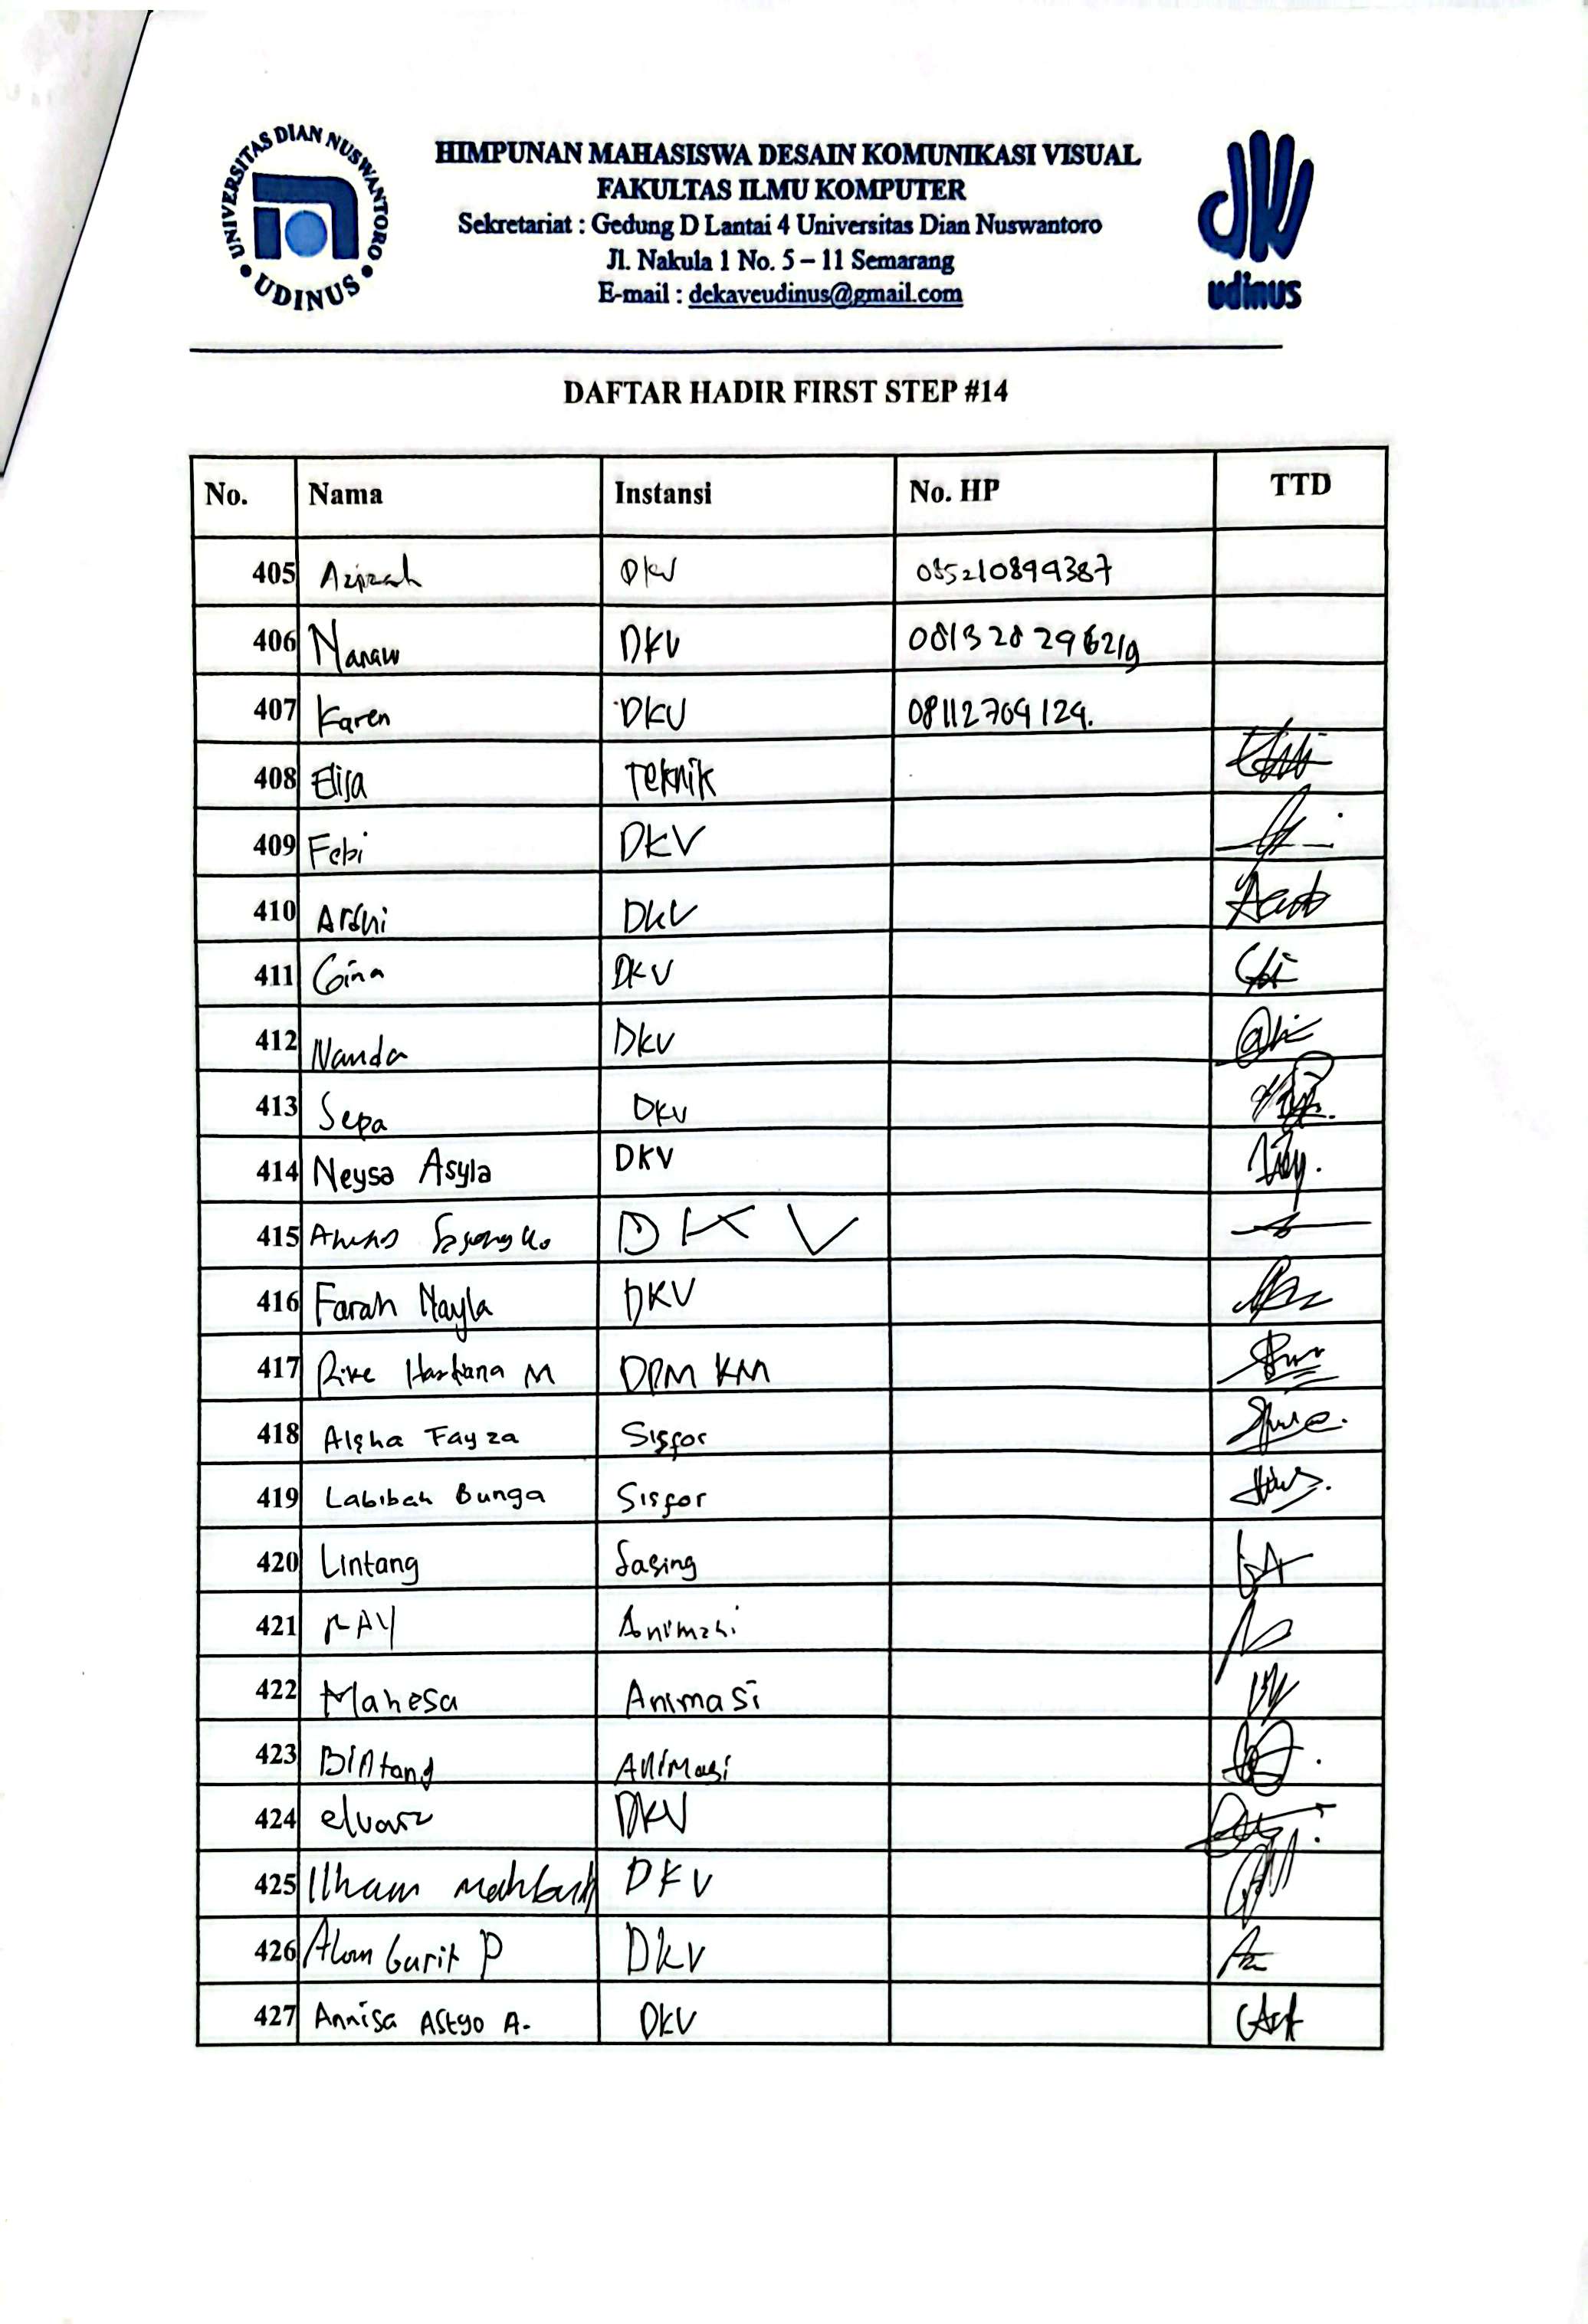 UNIVERSITAS DIAN NUSWANTORO
• UDINUS •
HIMPUNAN MAHASISWA DESAIN KOMUNIKASI VISUAL
FAKULTAS ILMU KOMPUTER
Sekretariat : Gedung D Lantai 4 Universitas Dian Nuswantoro
Jl. Nakula 1 No. 5 – 11 Semarang
E-mail : dekaveudinus@gmail.com
dkv
udinus
DAFTAR HADIR FIRST STEP #14
No. Nama Instansi No. HP TTD
405 Azizah DKV 085210899387
406 Nanaw DKV 0813 28 29 6219
407 Karen DKV 08112709129.
408 Elisa Teknik
409 Febi DKV
410 Arshi DKV
411 Gina DKV
412 Nanda DKV
413 Sepa DKV
414 Neysa Asyla DKV
415 DKV
416 Farah Nayla DKV
417 M DPM KM
418 Alsha Fayza Sisfor
419 Labibah Bunga Sisfor
420 Lintang Sasing
421 RAY Animasi
422 Mahesa Animasi
423 Bintang Animasi
424 DKV
425 Ilham DKV
426 Garit P DKV
427 Annisa Astyo A. DKV